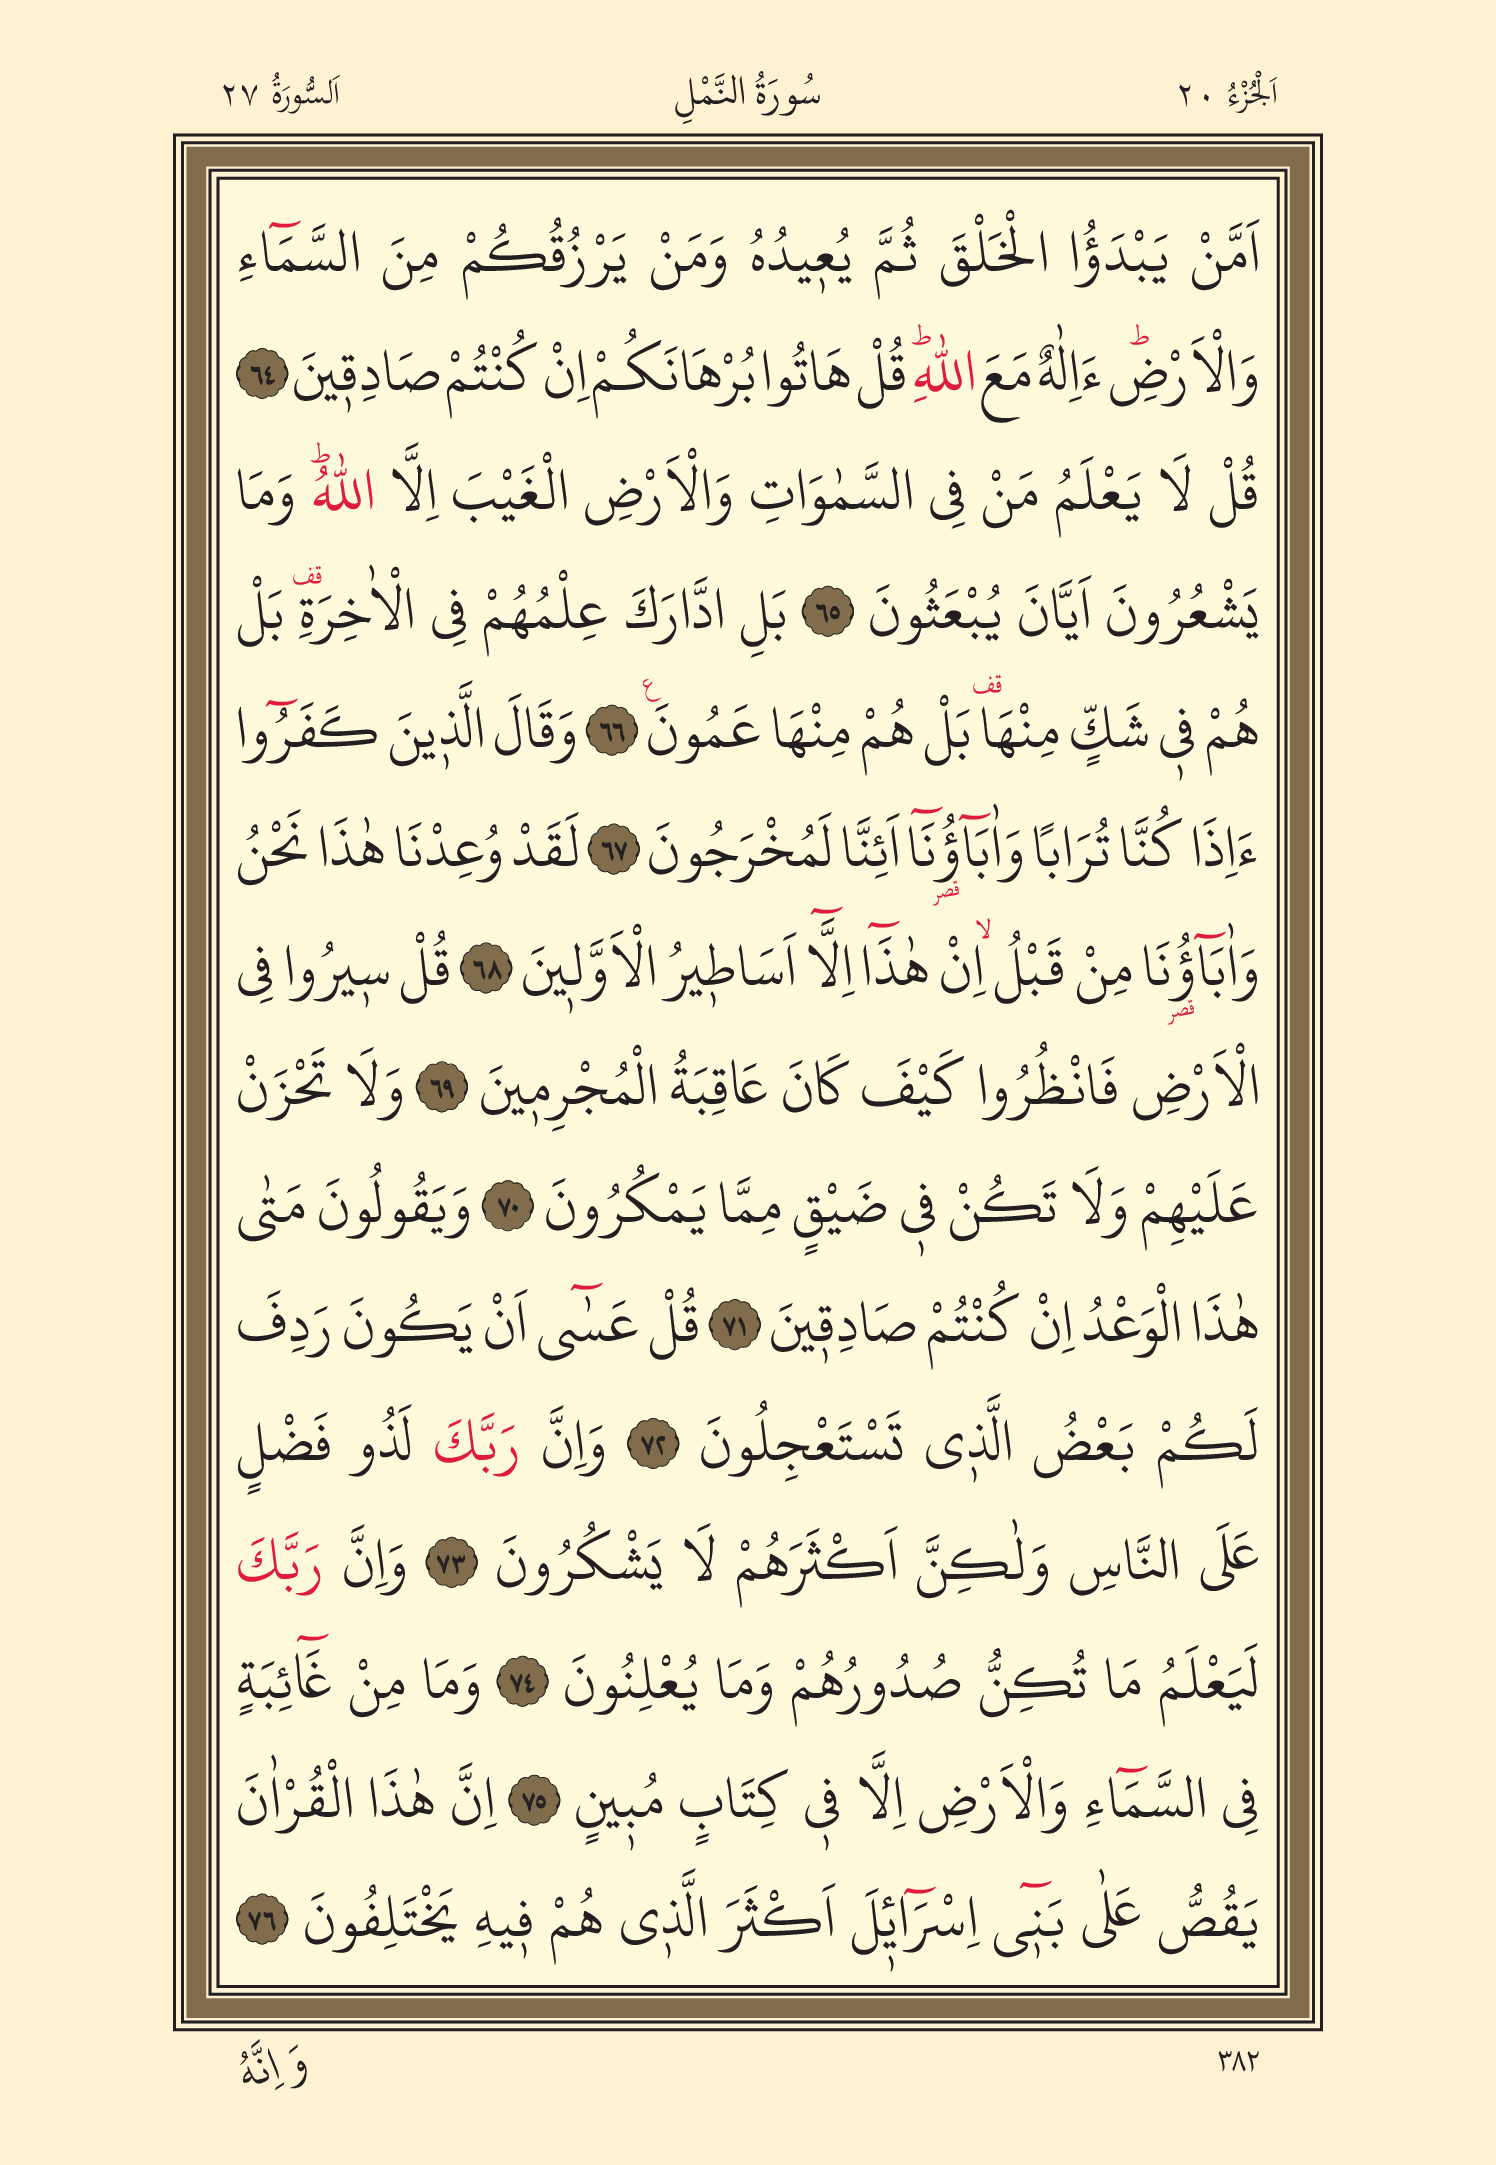 اَلْجُزْءُ ٢٠ سُورَةُ النَّمْلِ اَلسُّورَةُ ٢٧
اَمَّنْ يَبْدَؤُا الْخَلْقَ ثُمَّ يُع۪يدُهُ وَمَنْ يَرْزُقُكُمْ مِنَ السَّمَٓاءِ
وَالْاَرْضِۜ ءَاِلٰهٌ مَعَ اللّٰهِۜ قُلْ هَاتُوا بُرْهَانَكُمْ اِنْ كُنْتُمْ صَادِق۪ينَ ﴿٦٤﴾
قُلْ لَا يَعْلَمُ مَنْ فِي السَّمٰوَاتِ وَالْاَرْضِ الْغَيْبَ اِلَّا اللّٰهُۜ وَمَا
يَشْعُرُونَ اَيَّانَ يُبْعَثُونَ ﴿٦٥﴾ بَلِ ادَّارَكَ عِلْمُهُمْ فِي الْاٰخِرَةِ قف بَلْ
هُمْ ف۪ي شَكٍّ مِنْهَا قف بَلْ هُمْ مِنْهَا عَمُونَ ع ﴿٦٦﴾ وَقَالَ الَّذ۪ينَ كَفَرُٓوا
ءَاِذَا كُنَّا تُرَابًا وَاٰبَٓاؤُ۬نَٓا اَئِنَّا لَمُخْرَجُونَ ﴿٦٧﴾ لَقَدْ وُعِدْنَا هٰذَا نَحْنُ
قصر
وَاٰبَٓاؤُ۬نَا مِنْ قَبْلُۙ اِنْ هٰذَٓا اِلَّٓا اَسَاط۪يرُ الْاَوَّل۪ينَ ﴿٦٨﴾ قُلْ س۪يرُوا فِي
قصر
الْاَرْضِ فَانْظُرُوا كَيْفَ كَانَ عَاقِبَةُ الْمُجْرِم۪ينَ ﴿٦٩﴾ وَلَا تَحْزَنْ
عَلَيْهِمْ وَلَا تَكُنْ ف۪ي ضَيْقٍ مِمَّا يَمْكُرُونَ ﴿٧٠﴾ وَيَقُولُونَ مَتٰى
هٰذَا الْوَعْدُ اِنْ كُنْتُمْ صَادِق۪ينَ ﴿٧١﴾ قُلْ عَسٰٓى اَنْ يَكُونَ رَدِفَ
لَكُمْ بَعْضُ الَّذ۪ي تَسْتَعْجِلُونَ ﴿٧٢﴾ وَاِنَّ رَبَّكَ لَذُو فَضْلٍ
عَلَى النَّاسِ وَلٰكِنَّ اَكْثَرَهُمْ لَا يَشْكُرُونَ ﴿٧٣﴾ وَاِنَّ رَبَّكَ
لَيَعْلَمُ مَا تُكِنُّ صُدُورُهُمْ وَمَا يُعْلِنُونَ ﴿٧٤﴾ وَمَا مِنْ غَٓائِبَةٍ
فِي السَّمَٓاءِ وَالْاَرْضِ اِلَّا ف۪ي كِتَابٍ مُب۪ينٍ ﴿٧٥﴾ اِنَّ هٰذَا الْقُرْاٰنَ
يَقُصُّ عَلٰى بَن۪ٓي اِسْرَٓائ۪لَ اَكْثَرَ الَّذ۪ي هُمْ ف۪يهِ يَخْتَلِفُونَ ﴿٧٦﴾
٣٨٢ وَاِنَّهُ